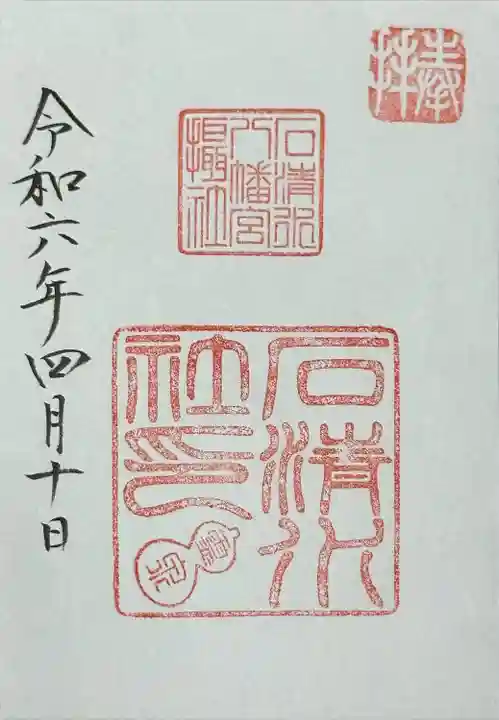 奉拝
石清水
八幡宮
摂社
石清水
社印
霊泉
令和六年四月十日